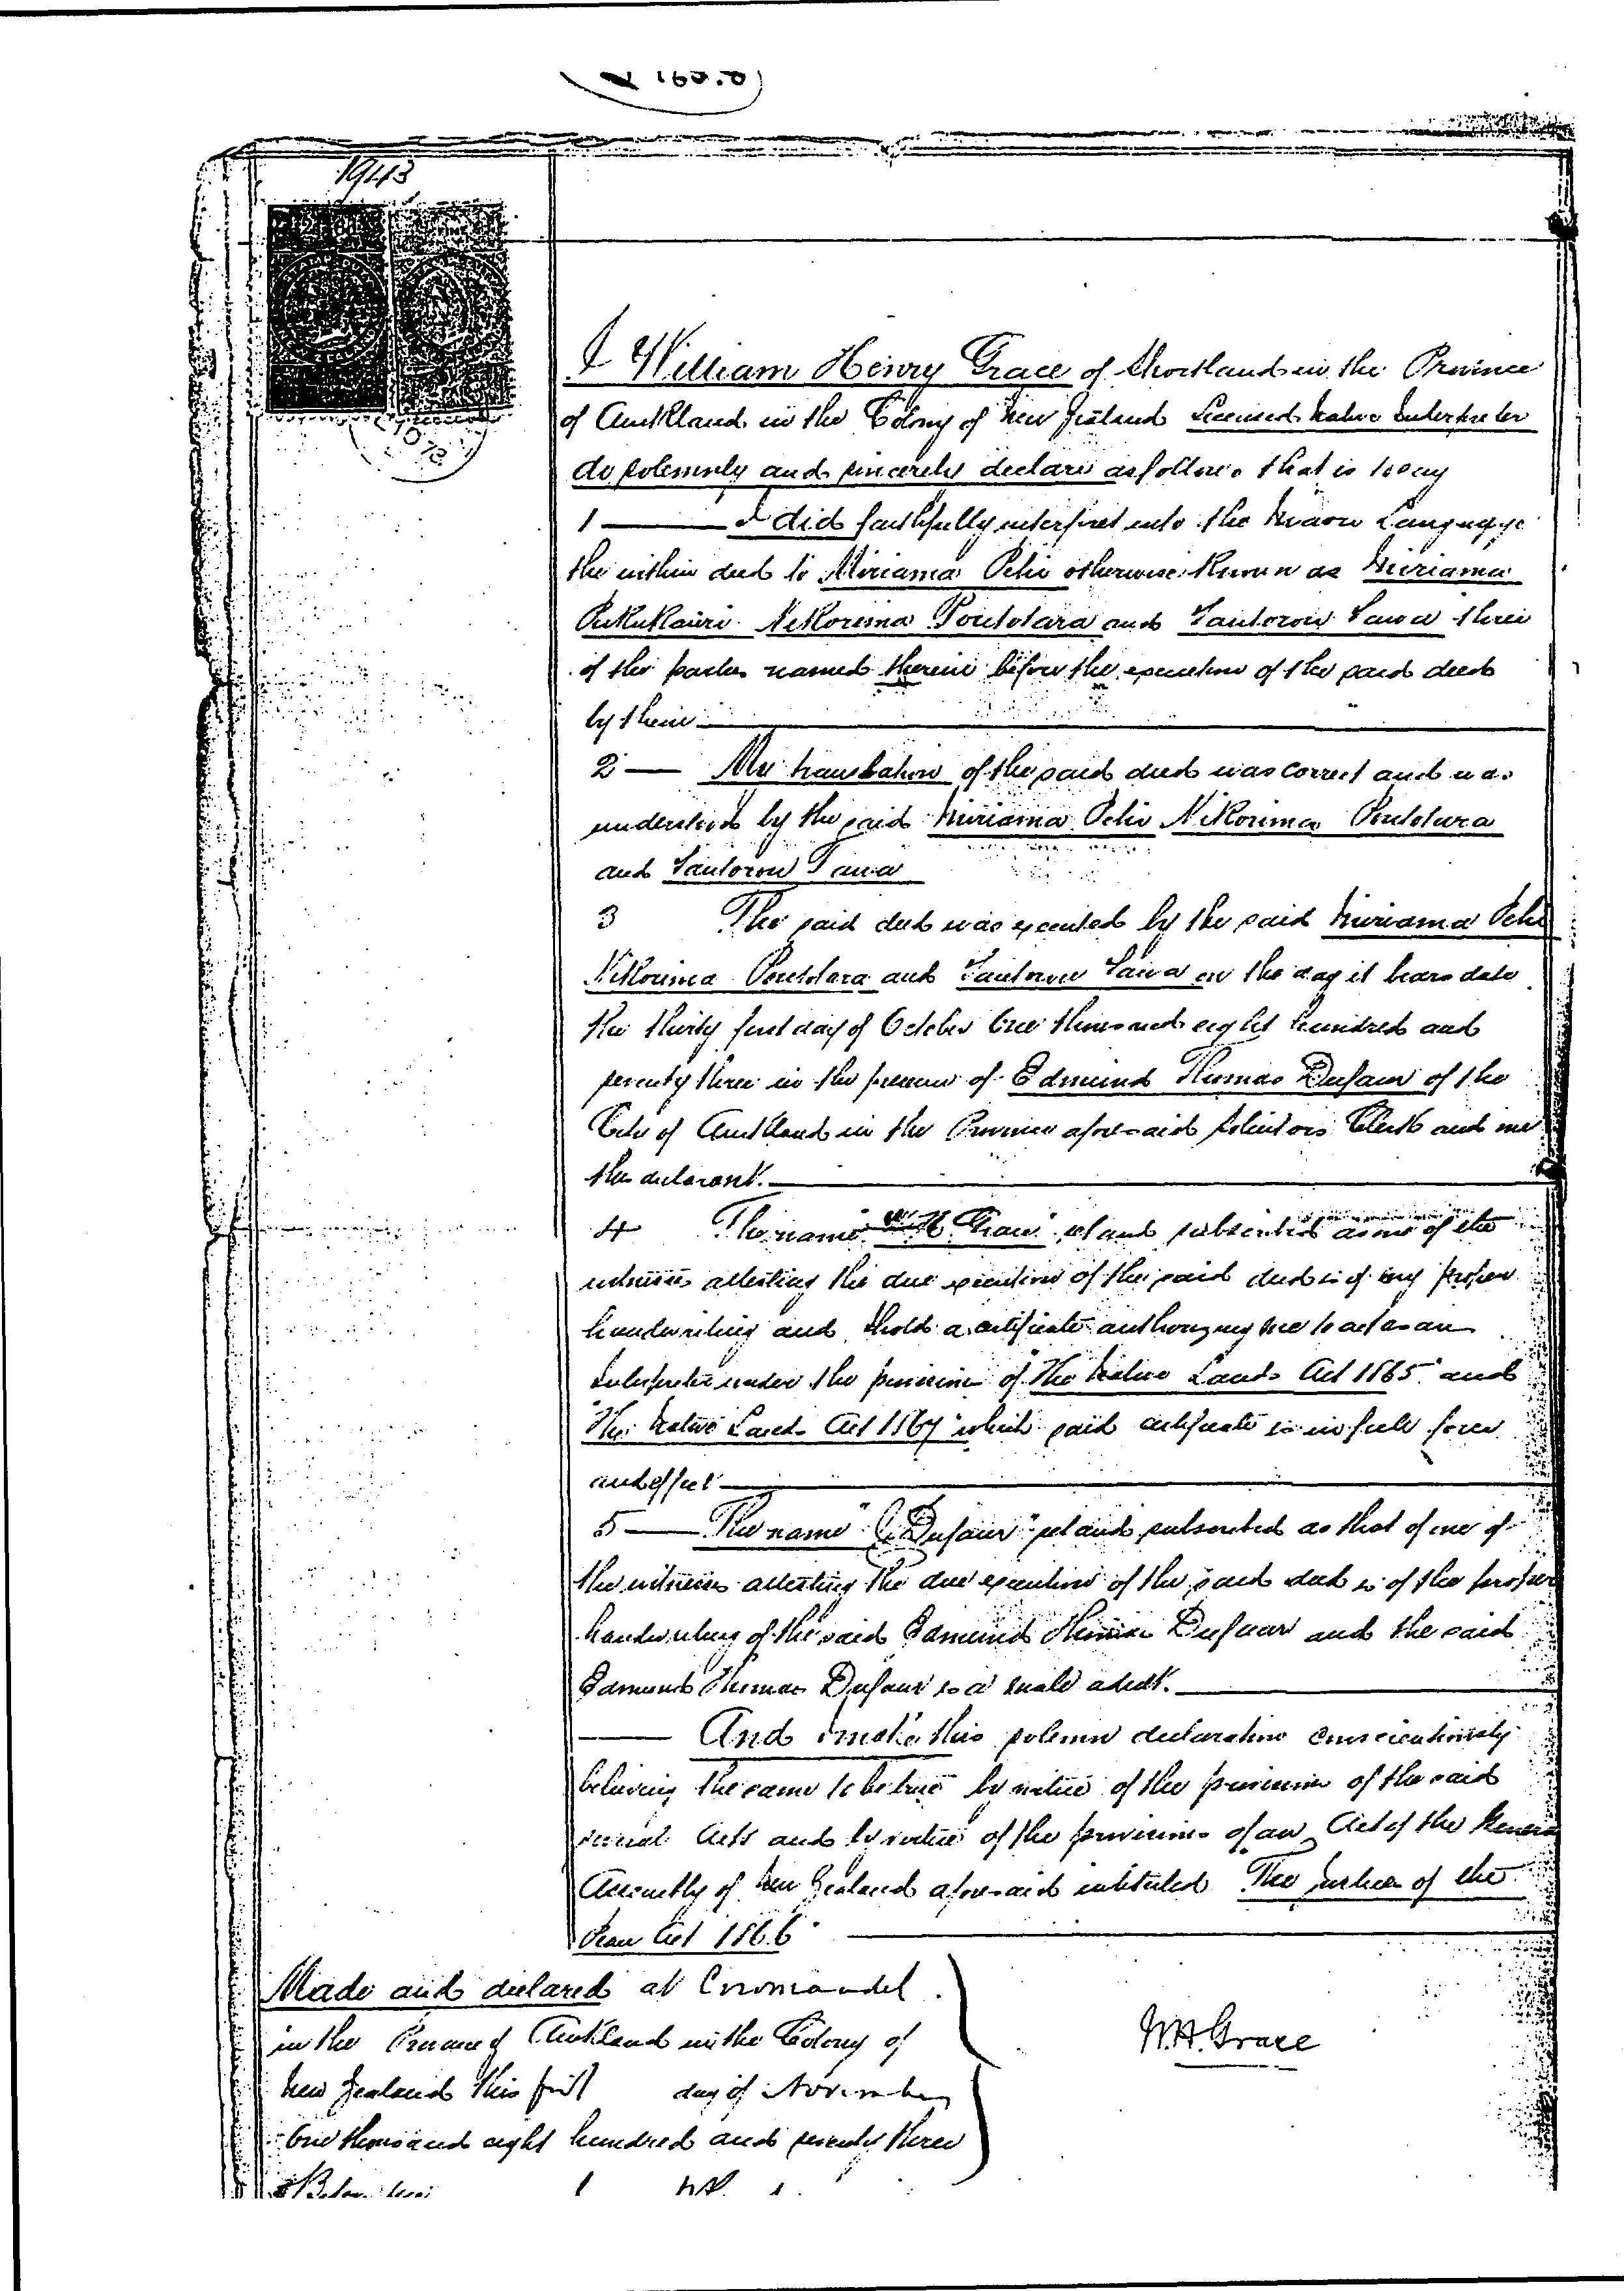 1943
I William Henry Grace of Shortland in the Province
of Auckland in the Colony of New Zealand Licensed Native Interpreter
do solemnly and sincerely declare as follows that is to say
1 I did faithfully interpret into the Maori Language
the within deed to Miriama Pehi otherwise known as Miriama
Pukukauri Nikorima Poutotara and Tautoron Tawa three
of the parties named therein before the execution of the said deed
by them
2 My translation of the said deed was correct and was
understood by the said Miriama Pehi Nikorima Poutotara
and Tautoron Tawa
3 The said deed was executed by the said Miriama Pehi
Nikorima Poutotara and Tautoron Tawa on the day it bears date
the thirty first day of October One thousand eight hundred and
seventy three in the presence of Edmund Thomas Dufaur of the
City of Auckland in the Province aforesaid Solicitors Clerk and me
the declarant.
4 The name "W H Grace" set and subscribed as one of the
witnesses attesting the due execution of the said deed is of my proper
handwriting and I hold a certificate authorizing me to act as an
Interpreter under the provisions of "The Native Lands Act 1865" and
"The Native Lands Act 1867" which said certificate is in full force
and effect
5 The name "E Dufaur" set and subscribed as that of one of
the witnesses attesting the due execution of the said deed is of the proper
handwriting of the said Edmund Thomas Dufaur and the said
Edmund Thomas Dufaur is a male adult.
And I make this solemn declaration conscientiously
believing the same to be true by virtue of the provisions of the said
recited Acts and by virtue of the provisions of an Act of the General
Assembly of New Zealand aforesaid intituled "The Justices of the
Peace Act 1866"
Made and declared at Coromandel
in the Province of Auckland in the Colony of
New Zealand this first day of November
One thousand eight hundred and seventy three
W.H. Grace
Before me